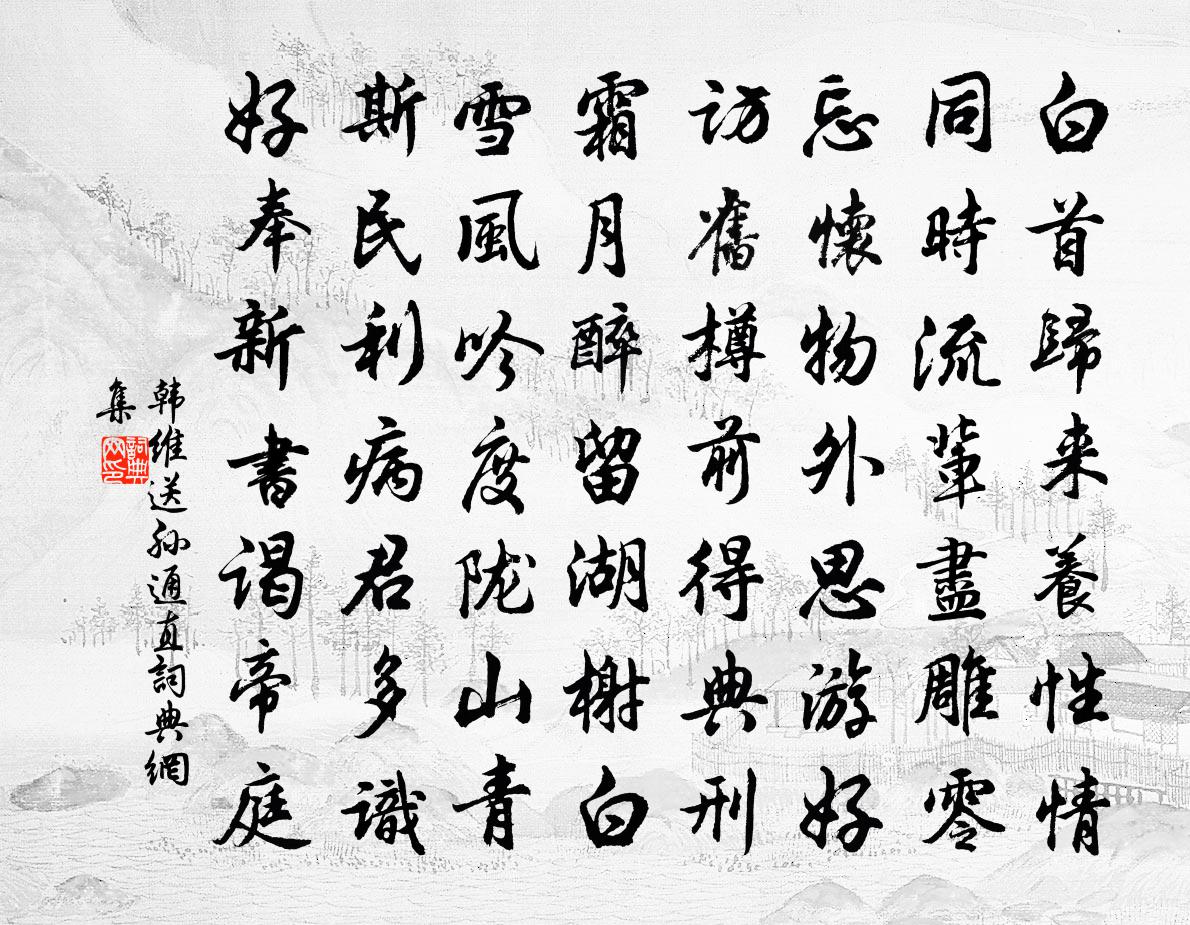 白首歸来養性情
同時流輩盡雕零
忘懷物外思游好
訪舊樽前得典刑
霜月醉留湖榭白
雪風吟度陇山青
斯民利病君多識
好奉新書谒帝庭
韩維送孙通直詞典網
集
詞典
网印